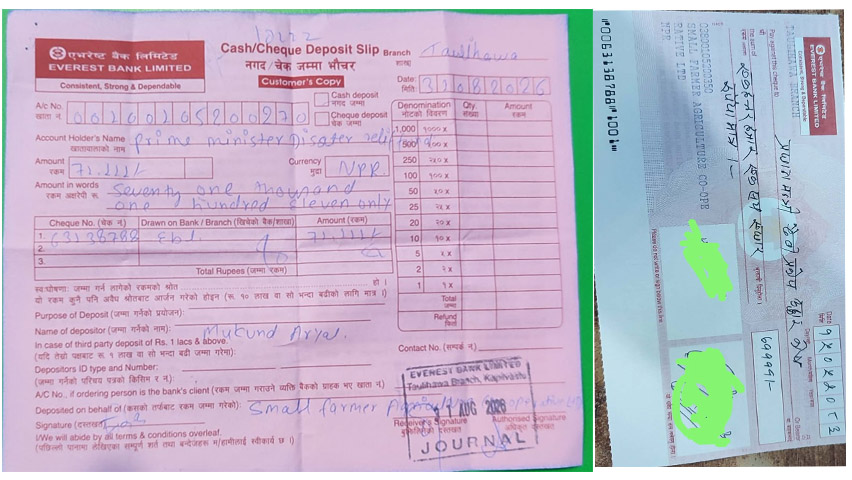 12122
एभरेष्ट बैंक लिमिटेड
EVEREST BANK LIMITED
Consistent, Strong & Dependable
Cash/Cheque Deposit Slip
नगद/चेक जम्मा भौचर
Customer's Copy
Branch Taulihawa
शाखा
Date: 31082026
मिति:
Cash deposit
नगद जम्मा
Cheque deposit
चेक जम्मा
A/c No. 00100105200270
खाता नं
Account Holder's Name Prime minister Disater relif fund
खातावालाको नाम
Amount 71,111/-
रकम
Currency NPR.
मुद्रा
Amount in words Seventy one thousand
रकम अक्षरेपी रू. one hundred eleven only
Cheque No. (चेक नं) Drawn on Bank / Branch (खिचेको बैंक/शाखा) Amount (रकम)
1. 63138788 Ebl. 71,111/-
2.
3.
Total Rupees (जम्मा रकम)
Denomination Qty. Amount
नोटको विवरण संख्या रकम
1,000 १००० x
500 ५०० x
250 २५० x
100 १०० x
50 ५० x
25 २५ x
20 २० x
10 १० x
5 ५ x
2 २ x
1 १ x
Total
जम्मा
Refund
फिर्ता
स्व:घोषणा: जम्मा गर्न लागेको रकमको स्रोत हो ।
यो रकम कुनै पनि अवैध श्रोतबाट आर्जन गरेको होइन (रू. १० लाख वा सो भन्दा बढीको लागि मात्र ।)
Purpose of Deposit (जम्मा गर्नेको प्रयोजन):
Name of depositor (जम्मा गर्नेको नाम): Mukund Aryal.
In case of third party deposit of Rs. 1 lacs & above.
(यदि तेस्रो पक्षबाट रू. १ लाख वा सो भन्दा बढी जम्मा गरेमा):
Contact No. (सम्पर्क नं)
Depositors ID type and Number:
(जम्मा गर्नेको परिचय पत्रको किसिम र नं):
A/C No., if ordering person is the bank's client (रकम जम्मा गराउने व्यक्ति बैंकको ग्राहक भए खाता नं)
Deposited on behalf of (कसको तर्फबाट रकम जम्मा गरेको): Small farmer
Signature (दस्तखत)
Receiver's Signature
बुझिलिनेको दस्तखत
Authorised Signature
अधिकृत दस्तखत
I/We will abide by all terms & conditions overleaf.
(पछिल्लो पानामा लेखिएका सम्पूर्ण शर्त तथा बन्देजहरू म/हामीलाई स्वीकार्य छ ।)
EVEREST BANK LIMITED
Taulihawa Branch, Kapilvastu
31 AUG 2026
JOURNAL
एभरेष्ट बैंक लिमिटेड
EVEREST BANK LIMITED
Consistent, Strong & Dependable
TAULIHAWA BRANCH
Pay against this cheque to
The sum of
रकम रुपैयाँ
03800105200350
SMALL FARMER AGRICULTURE CO-OPE
RATIVE LTD
NPR
Please do not write or sign below this line